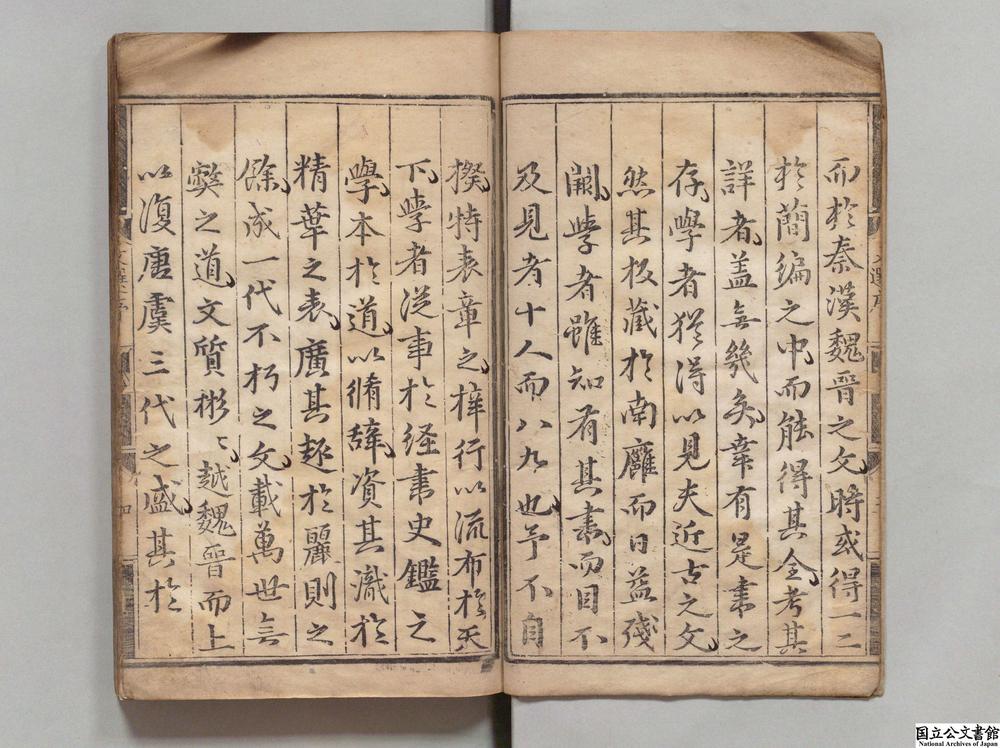 而於秦漢魏晉之文時或得一二
於簡編之中而能得其全考其
詳者盖無幾矣幸有是書之
存學者猶得以見夫近古之文
然其板藏於南廱而日益殘
闕學者雖知有其書而目不
及見者十人而八九也予不自
揆特表章之梓行以流布於天
下學者從事於経書史鑑之
學本於道以脩辞資其識於
精華之表廣其趣於麗則之
餘成一代不朽之文載萬世無
弊之道文質彬〻越魏晉而上
以復唐虞三代之盛其於
文選序
四
国立公文書館
National Archives of Japan